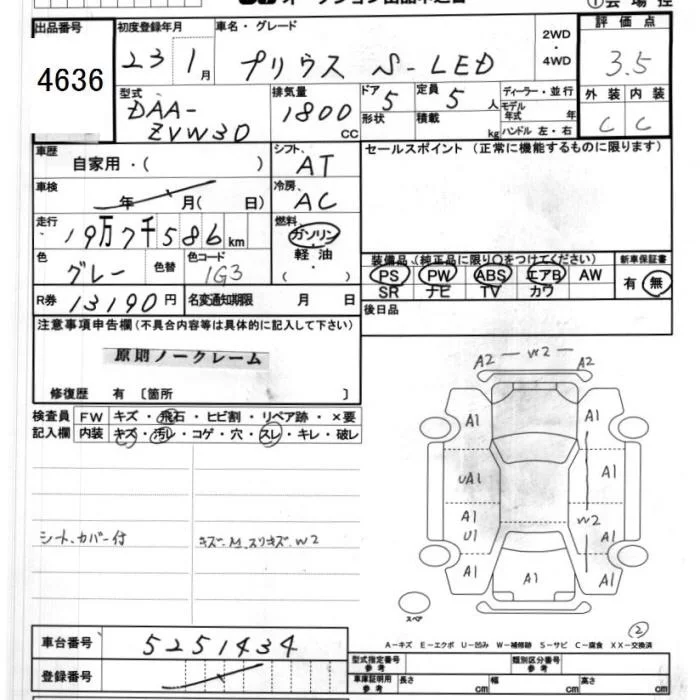 出品番号 4636
初度登録年月 23 1月
車名・グレード プリウス S-LED
2WD・4WD
評価点 3.5
外装 内装
C C
型式 DAA-ZVW30
排気量 1800 cc
ドア 5 定員 5人
形状 積載 kg
ディーラー・並行
モデル年式 年
ハンドル 左・右
車歴 自家用・( )
シフト AT
セールスポイント (正常に機能するものに限ります)
車検 年 月( 日)
冷房 AC
走行 19万7千586km
燃料 ガソリン・軽油・( )
色 グレー 色替 色コード 1G3
装備品 (純正品に限り○をつけてください)
PS PW ABS エアB AW
SR ナビ TV カワ
新車保証書 有・無
R券 13190円 名変通知期限 月 日
後日品
注意事項申告欄(不具合内容等は具体的に記入して下さい)
原則ノークレーム
修復歴 有 〔箇所 〕
検査員記入欄
FW キズ・飛石・ヒビ割・リペア跡・×要
内装 キズ・汚レ・コゲ・穴・スレ・キレ・破レ
シート、カバー付
キズ、M、スリキズ、W2
A2 W2 A2
A1 A1
UA1 A1
A1 U1 W2 A1
A1 A1 A1
スペア
2
A-キズ E-エクボ U-凹み W-補修跡 S-サビ C-腐食 XX-交換済
車台番号 5251434
登録番号
型式指定番号 参考 類別区分番号 参考
車庫証明用 参考 長さ cm 幅 cm 高さ cm